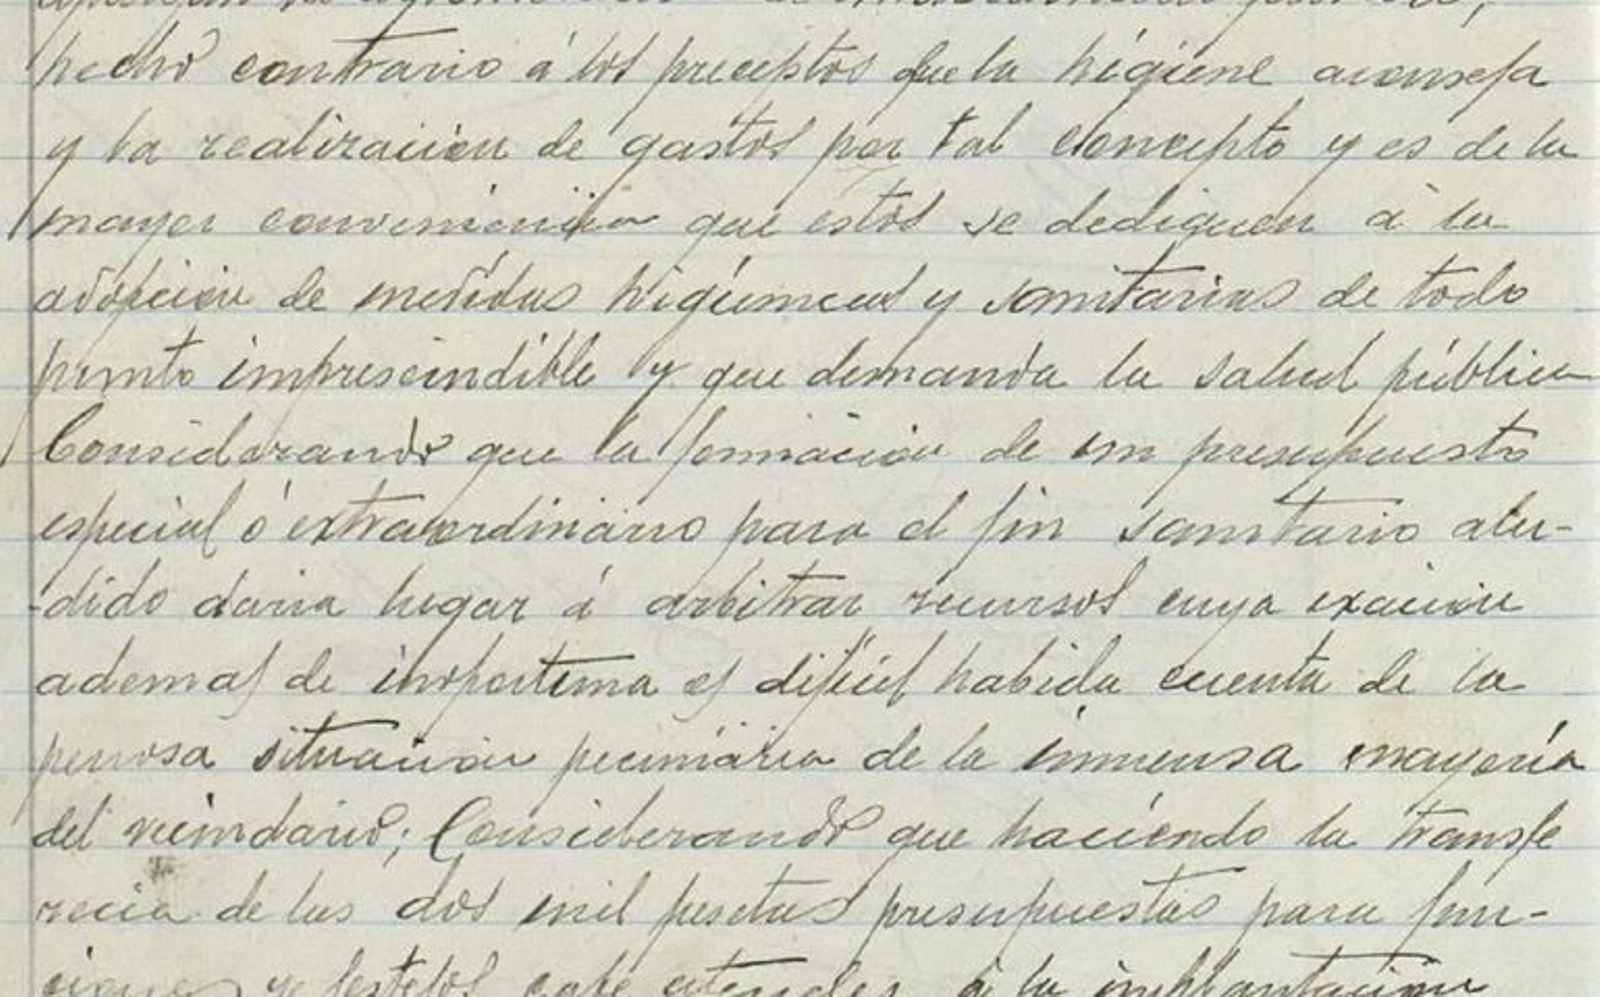 hecho contrario á los preceptos que la higiene aconseja
y la realización de gastos por tal concepto y es de la
mayor conveniencia que estos se dediquen á la
adopcion de medidas higiénicas y sanitarias de todo
punto imprescindible y que demanda la salud pública
Considerando que la formacion de un presupuesto
especial ó extraordinario para el fin sanitario alu-
-dido daria lugar á arbitrar recursos cuya exacion
ademas de inoportuna es difícil habida cuenta de la
penosa situacion pecuniaria de la inmensa mayoría
del vecindario; Considerando que haciendo la transfe
recia de las dos mil pesetas presupuestas para fun-
ciones y festejos cabe atender á la implantacion